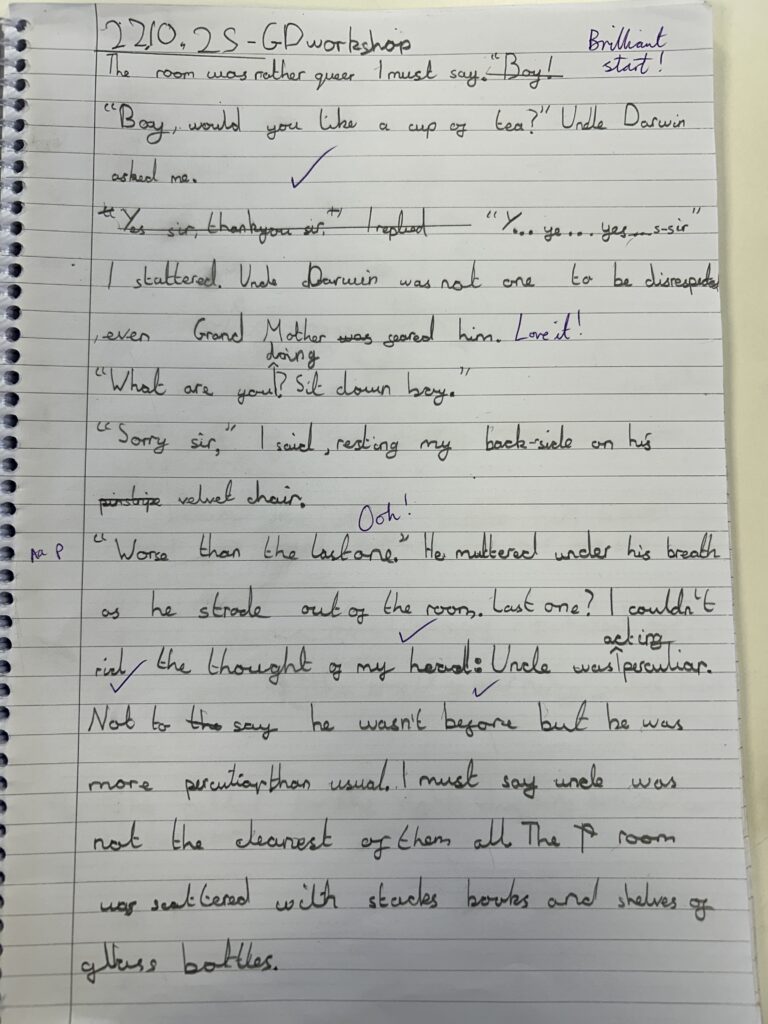 22.10.25 - GD workshop
Brilliant start!
The room was rather queer I must say. "Boy!
"Boy, would you like a cup of tea?" Uncle Darwin
asked me.
"Yes sir, thankyou sir." I replied "Y... ye... yes... s-sir"
I stattered. Uncle Darwin was not one to be disrespected
, even Grand Mother was feared him. Love it!
doing
"What are you? Sit down boy."
"Sorry sir," I said, resting my back-side on his
pinstripe velvet chair.
Ooh!
"Worse than the last one." He muttered under his breath
as he strode out of the room. Last one? I couldn't
acting
rid the thought of my head: Uncle was perculiar.
Not to the say he wasn't before but he was
more perculiar than usual. I must say uncle was
not the cleanest of them all. The room
was scattered with stacks books and shelves of
glass bottles.